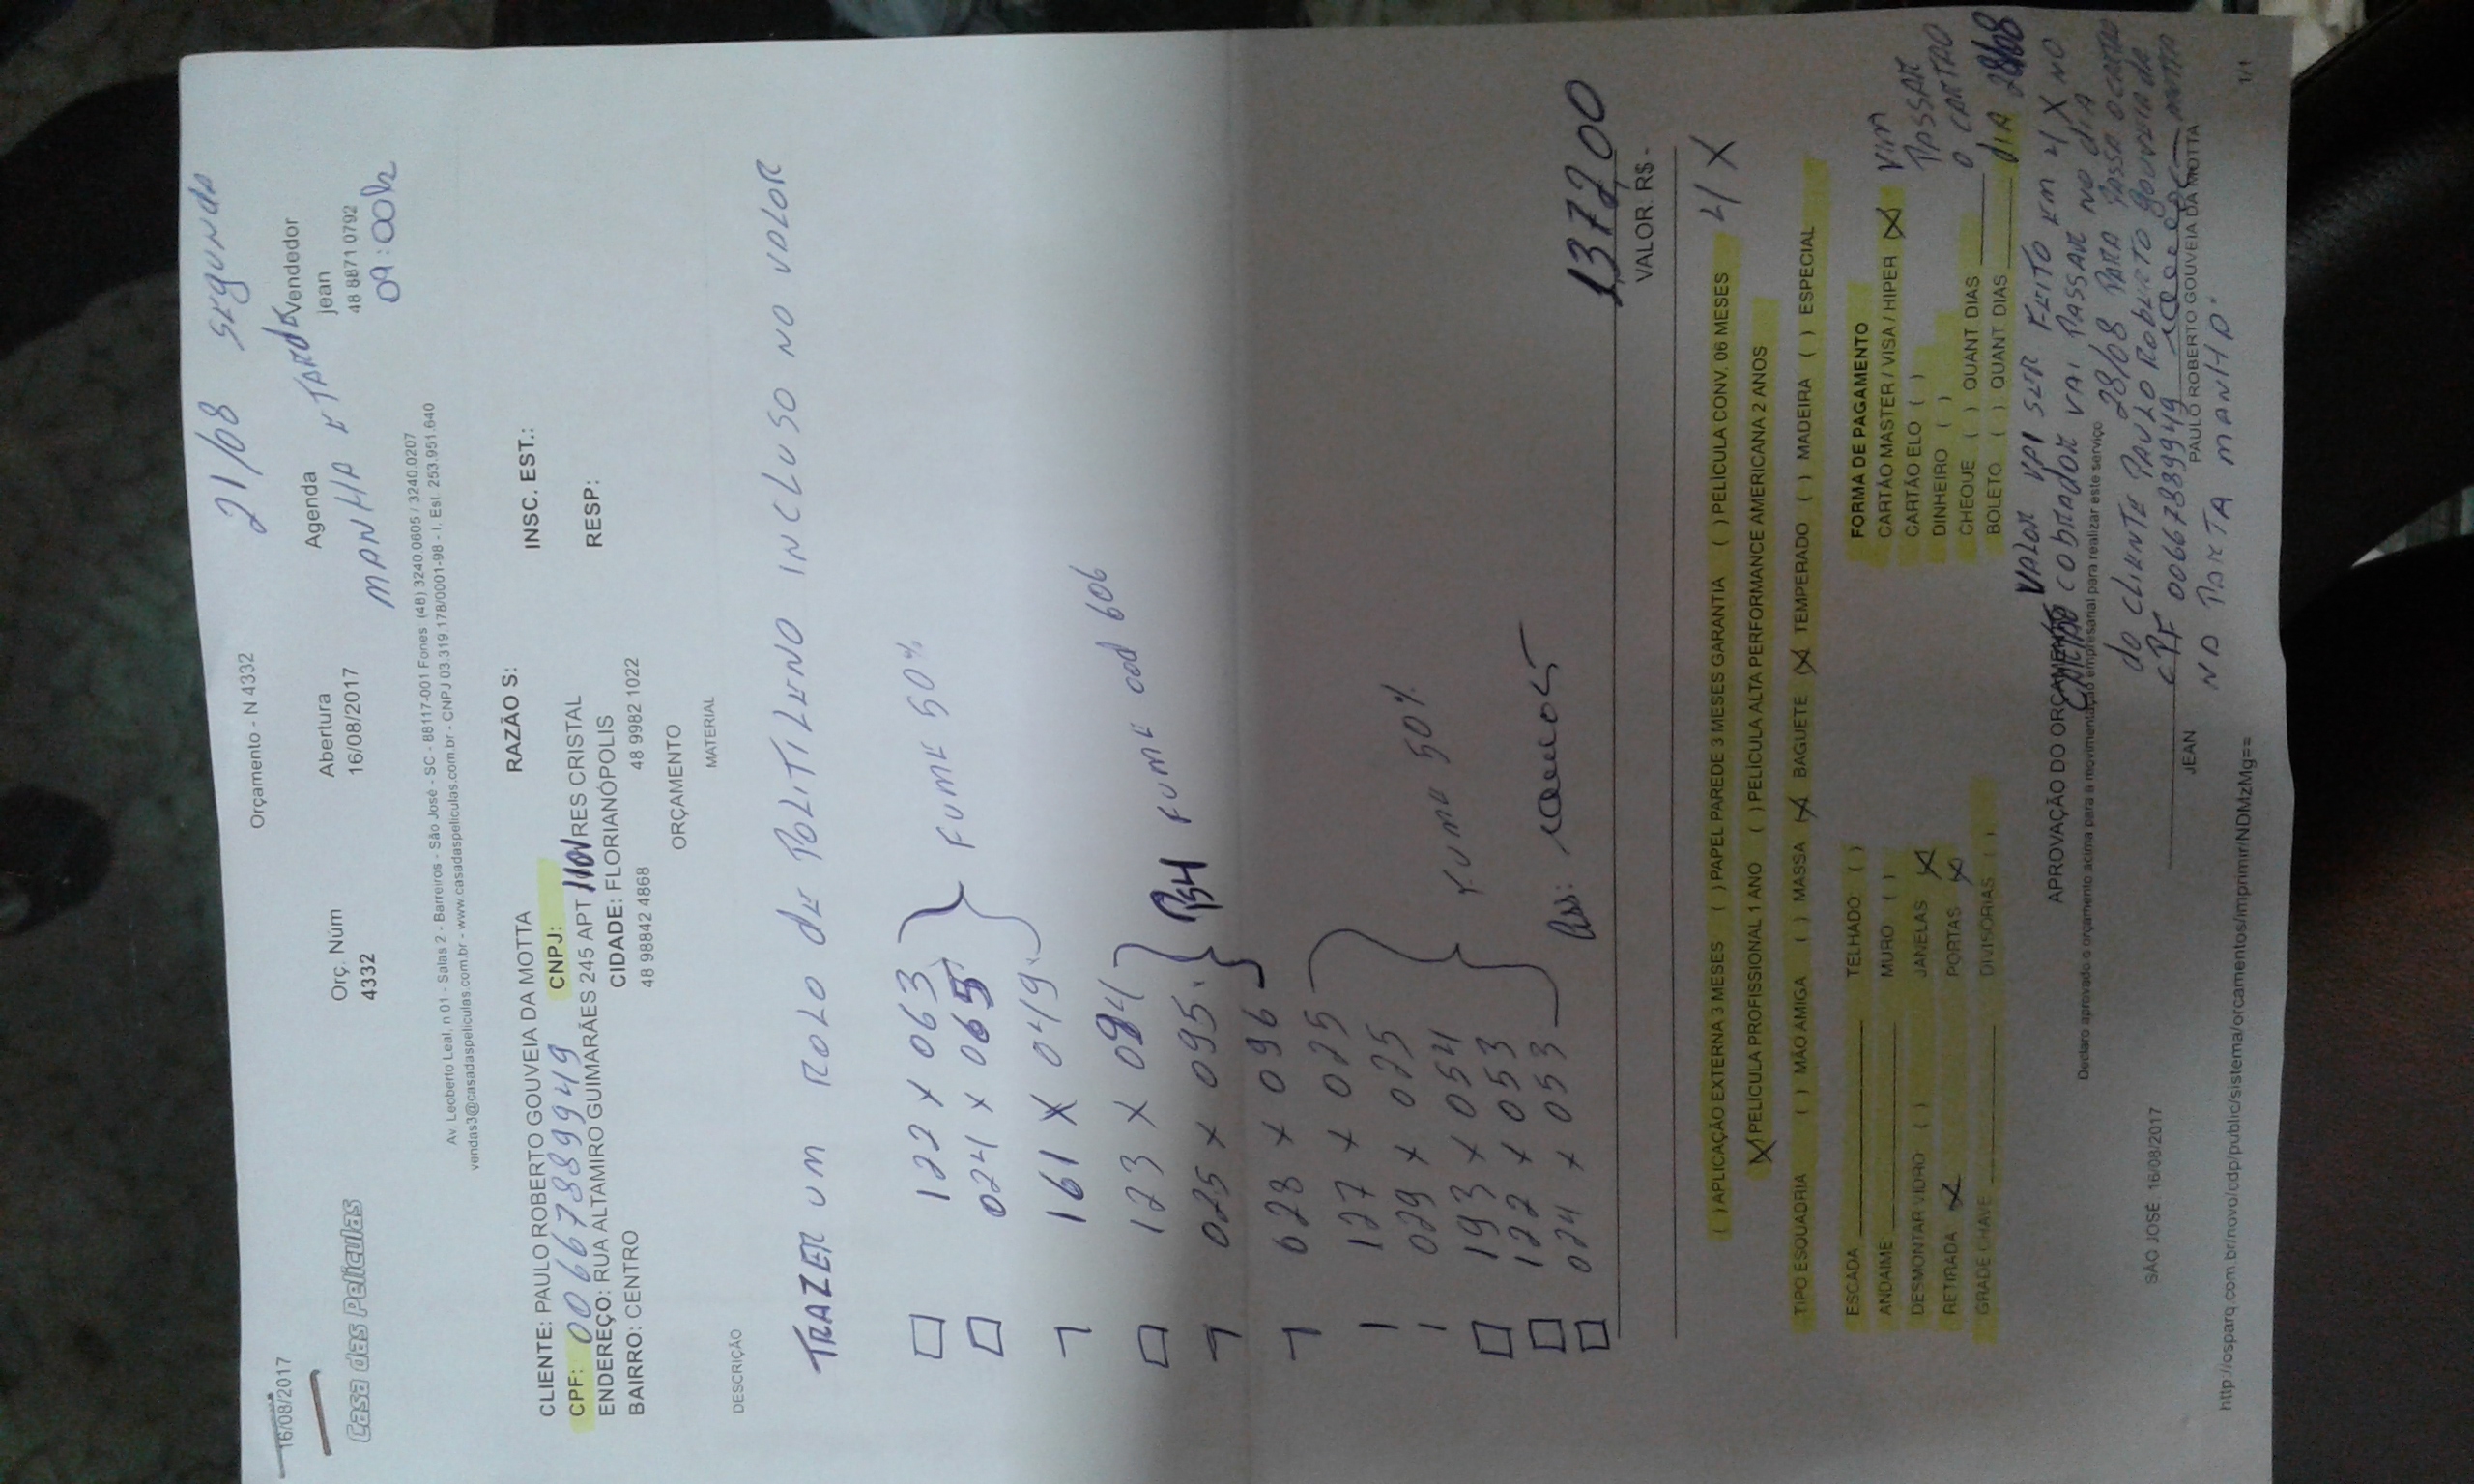 16/08/2017
Orçamento - N 4332
21/08 SEGUNDA
Casa das Películas
Orç. Núm
4332
Abertura
16/08/2017
Agenda
MANHÃ E TARDE
Vendedor
jean
48 8871 0792
09:00h
Av. Leoberto Leal, n 01 - Salas 2 - Barreiros - São José - SC - 88117-001 Fones (48) 3240.0605 / 3240.0207
vendas3@casadaspeliculas.com.br - www.casadaspeliculas.com.br - CNPJ 03.319.178/0001-98 - I. Est. 253.951.640
CLIENTE: PAULO ROBERTO GOUVEIA DA MOTTA
RAZÃO S:
INSC. EST.:
CPF: 00667889949 CNPJ:
RESP:
ENDEREÇO: RUA ALTAMIRO GUIMARÃES 245 APT 1101 RES CRISTAL
BAIRRO: CENTRO
CIDADE: FLORIANÓPOLIS
48 98842 4868
48 9982 1022
ORÇAMENTO
DESCRIÇÃO
MATERIAL
TRAZER UM ROLO DE POLITILENO INCLUSO NO VALOR
122 X 063
024 X 065
FUME 50%
161 X 049
123 X 094
025 X 095
PS4 FUME cod 606
628 X 096
127 X 025
029 X 025
193 X 054
FUME 50%
122 X 053
024 X 053
Ass:
1372,00
VALOR. R$ -
( ) APLICAÇÃO EXTERNA 3 MESES ( ) PAPEL PAREDE 3 MESES GARANTIA ( ) PELÍCULA CONV. 06 MESES 4 X
(X) PELÍCULA PROFISSIONAL 1 ANO ( ) PELÍCULA ALTA PERFORMANCE AMERICANA 2 ANOS
TIPO ESQUADRIA ( ) MÃO AMIGA ( ) MASSA (X) BAGUETE (X) TEMPERADO ( ) MADEIRA ( ) ESPECIAL
ESCADA TELHADO ( )
ANDAIME MURO ( )
DESMONTAR VIDRO ( ) JANELAS X
RETIRADA X PORTAS X
GRADE CHAVE DIVISÓRIAS ( )
FORMA DE PAGAMENTO
CARTÃO MASTER / VISA / HIPER (X) VIM
CARTÃO ELO ( ) PASSAR
DINHEIRO ( ) O CARTÃO
CHEQUE ( ) QUANT DIAS
BOLETO ( ) QUANT DIAS DIA 28/08
VALOR VAI SER FEITO EM 4 X NO
APROVAÇÃO DO ORÇAMENTO
COBRADOR VAI PASSAR NO DIA
Declaro aprovado o orçamento acima para a movimentação empresarial para realizar este serviço
28/08 PARA PASSAR O CARTÃO
do CLIENTE PAULO ROBERTO GOUVEIA da MOTTA
CPF 00667889949
SÃO JOSÉ 16/08/2017
JEAN
PAULO ROBERTO GOUVEIA DA MOTTA
NA PARTA MANHÃ.
http://osparq.com.br/novo/cdp/public/sistema/orcamentos/imprimir/NDMzMg==
1/1